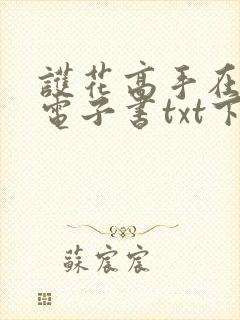 護花高手在
電子書txt下
蘇宸宸